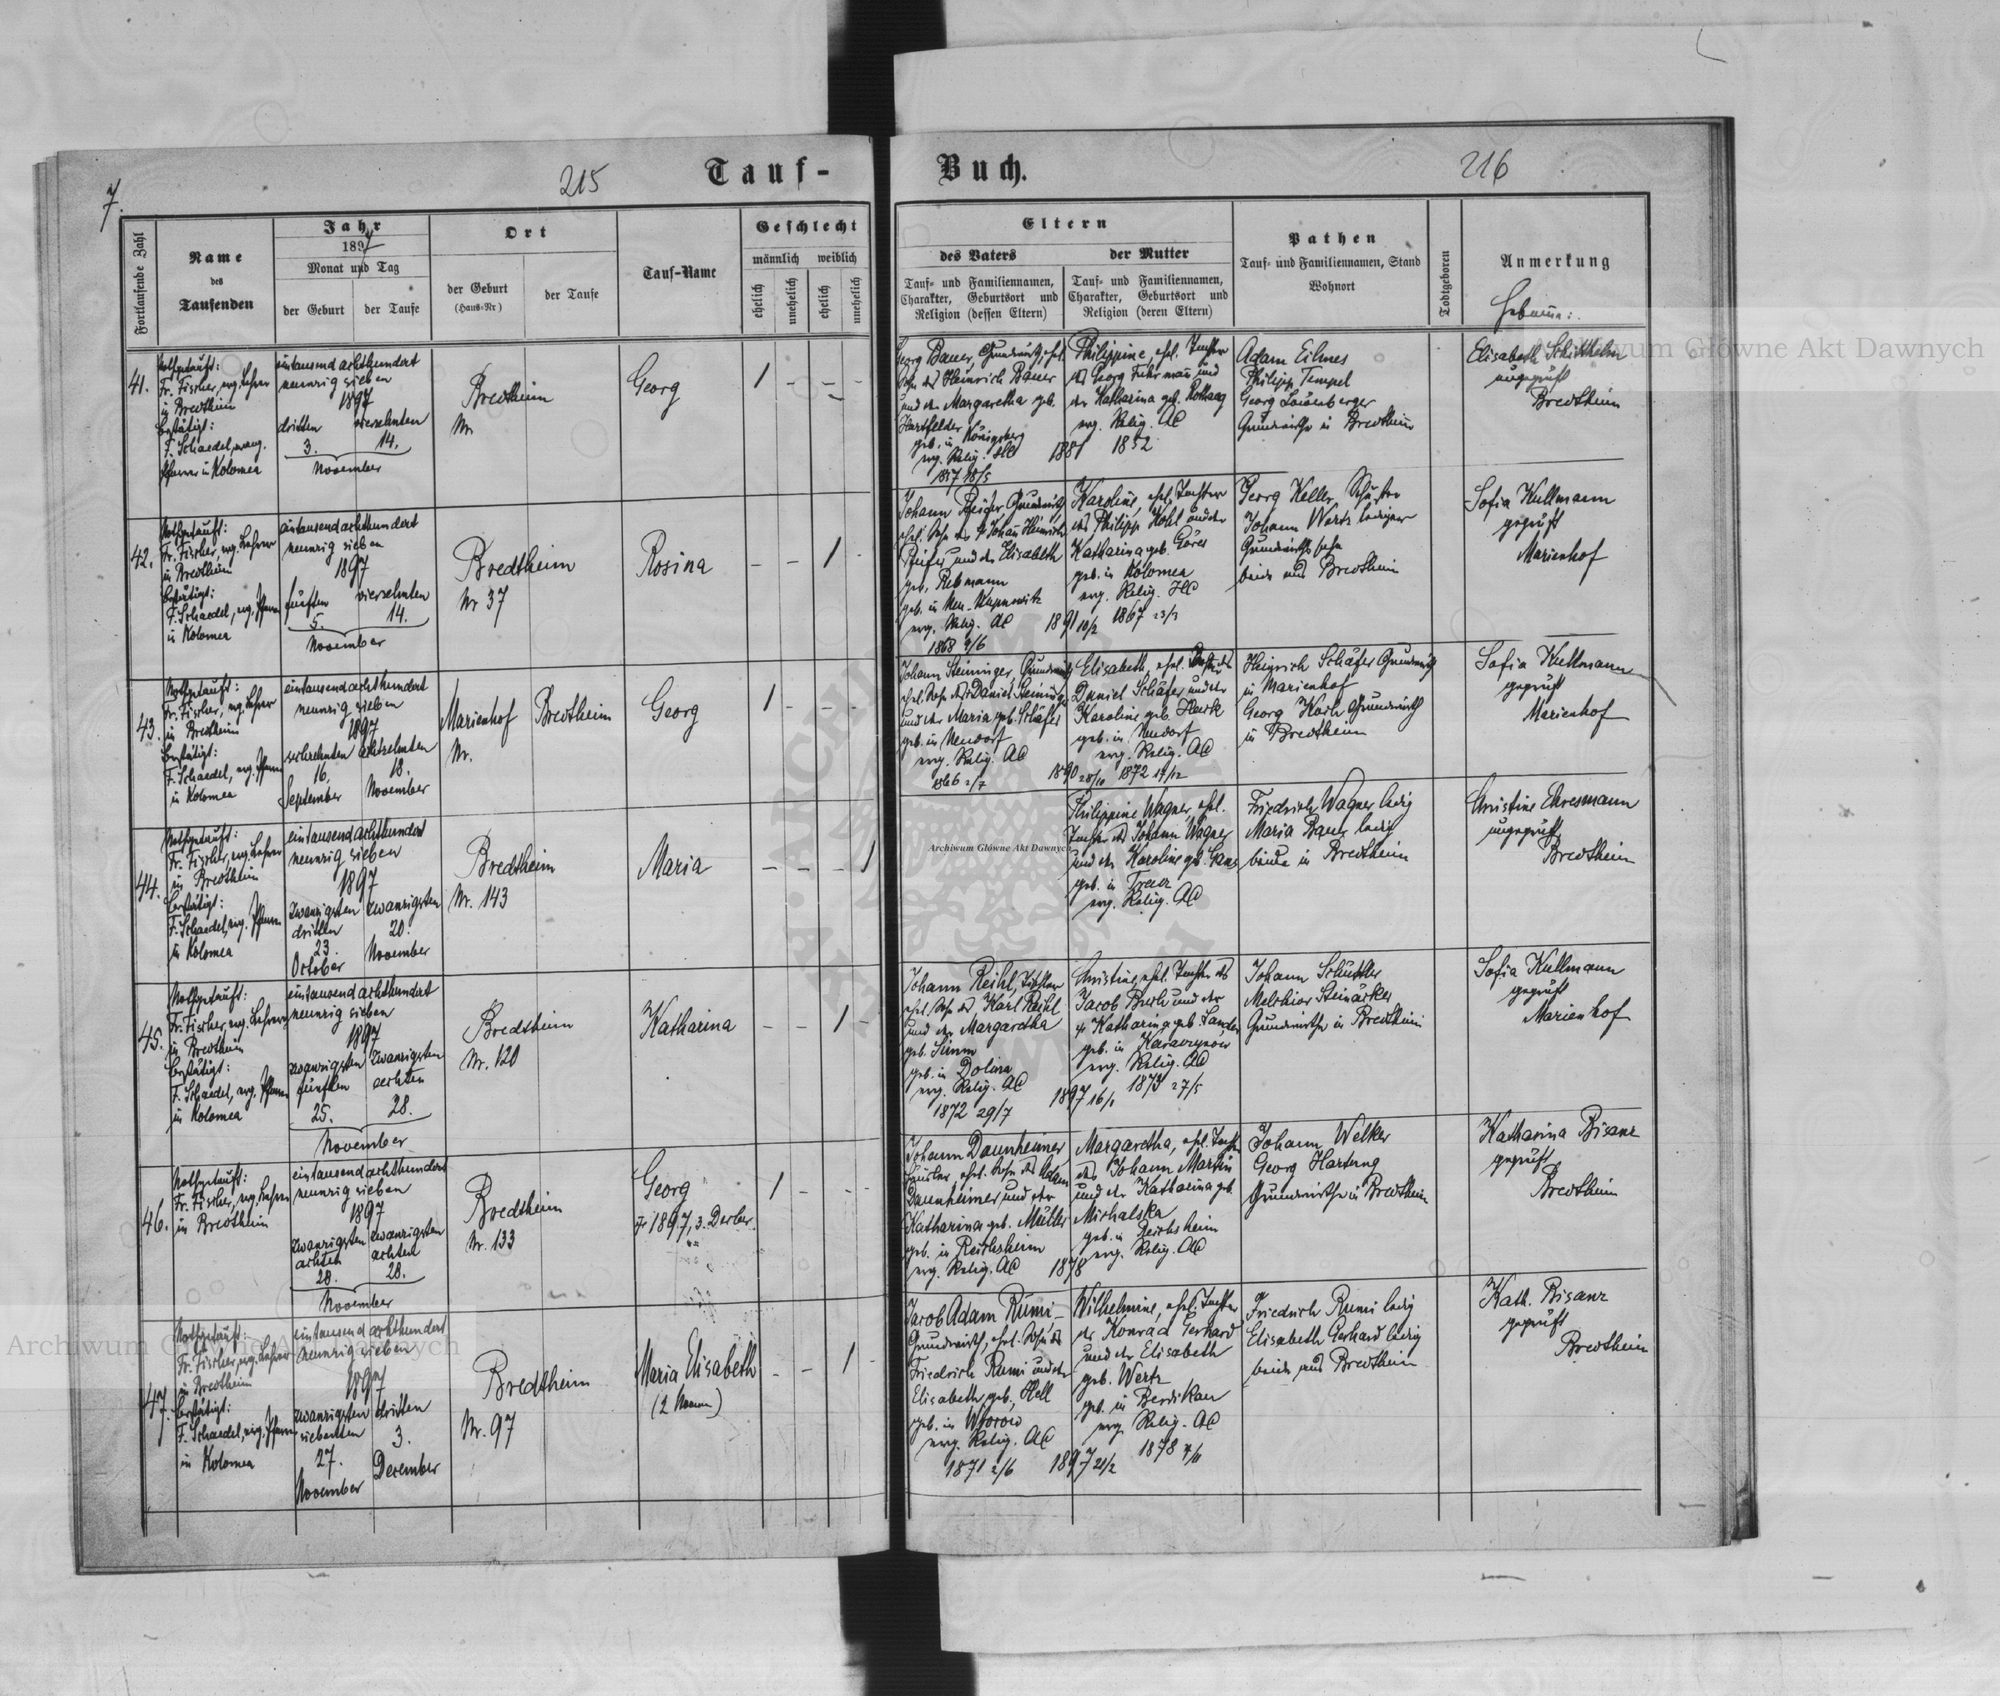 7.
215
Tauf-
Buch.
216
Fortlaufende Zahl
Name
des
Taufenden
Jahr
1897
Monat und Tag
der Geburt
der Taufe
Ort
der Geburt
(Haus-Nr)
der Taufe
Tauf-Name
Geschlecht
männlich weiblich
ehelich
unehelich
ehelich
unehelich
Eltern
des Vaters
Tauf- und Familiennamen,
Charakter, Geburtsort und
Religion (dessen Eltern)
der Mutter
Tauf- und Familiennamen,
Charakter, Geburtsort und
Religion (deren Eltern)
Pathen
Tauf- und Familiennamen, Stand
Wohnort
Todtgeboren
Anmerkung
41.
Nothgetauft:
Fr. Fischer, evg. Lehrer
in Bredtheim
bestätigt:
F. Schaedel, evang.
Pfarrer in Kolomea
eintausend achthundert
neunzig sieben
1897
dritten vierzehnten
3. 14.
November
Bredtheim
Nr.
Georg
1 - - -
Georg Bauer, Grundwirth, ehel.
Sohn des Heinrich Bauer
und der Margaretha geb.
Hartfelder
geb. in Königsberg
evg. Relig. HC
1857 18/5
Philippine, ehel. Tochter
des Georg Fuhrmann und
der Katharina geb.
evg. Relig. AC
1881 1852
Adam Eilmes
Philipp Tempel
Georg
Grundwirthe in Bredtheim
Elisabeth
ungeprüft
Bredtheim
42.
Nothgetauft:
Fr. Fischer, evg. Lehrer
in Bredtheim
bestätigt:
F. Schaedel, evg. Pfarrer
in Kolomea
eintausend achthundert
neunzig sieben
1897
fünften vierzehnten
5. 14.
November
Bredtheim
Nr 37
Rosina
- - 1 -
Johann Grundwirth,
ehel. Sohn des Johann Heinrich
und der Elisabeth
geb. Rebmann
geb. in
evg. Relig. AC
1868 9/6
Karoline, ehel. Tochter
des Philipp Kohl und der
Katharina geb. Göres
geb. in Kolomea
evg. Relig. HC
1891 10/2 1867 23/3
Georg Keller, Schuster
Johann lediger
Grundwirthssohn
beide aus Bredtheim
Sofia Kullmann
geprüft
Marienhof
43.
Nothgetauft:
Fr. Fischer, evg. Lehrer
in Bredtheim
bestätigt:
F. Schaedel, evg. Pfarrer
in Kolomea
eintausend achthundert
neunzig sieben
1897
sechzehnten achtzehnten
16. 18.
September November
Marienhof
Nr.
Bredtheim
Georg
1 - - -
Johann Steininger, Grundwirth
ehel. Sohn des Daniel Steininger
und der Maria geb. Schäfer
geb. in Neudorf
evg. Relig. AC
1866 2/7
Elisabeth, ehel. Tochter des
Daniel Schäfer und der
Karoline geb.
geb. in Neudorf
evg. Relig. AC
1890 28/10 1872 17/12
Heinrich Schäfer Grundwirth
in Marienhof
Georg Grundwirth
in Bredtheim
Sofia Kullmann
geprüft
Marienhof
44.
Nothgetauft:
Fr. Fischer, evg. Lehrer
in Bredtheim
bestätigt:
F. Schaedel, evg. Pfarrer
in Kolomea
eintausend achthundert
neunzig sieben
1897
zwanzigsten zwanzigsten
dritten
23. 20.
October November
Bredtheim
Nr. 143
Maria
- - - 1
Philippine Wagner, ehel.
Tochter des Johann Wagner
und der Karoline geb. Lang
geb. in
evg. Relig. AC
Friedrich Wagner ledig
Maria Bauer ledig
beide in Bredtheim
Christine Ehresmann
ungeprüft
Bredtheim
45.
Nothgetauft:
Fr. Fischer, evg. Lehrer
in Bredtheim
bestätigt:
F. Schaedel, evg. Pfarrer
in Kolomea
eintausend achthundert
neunzig sieben
1897
zwanzigsten zwanzigsten
fünften achten
25. 28.
November
Bredtheim
Nr. 120
Katharina
- - 1 -
Johann Reihl, Tischler
ehel. Sohn des Karl Reihl
und der Margaretha
geb.
geb. in Dolina
evg. Relig. AC
1872 29/7
Christine, ehel. Tochter des
Jacob und der
Katharina geb.
geb. in
evg. Relig. AC
1897 16/1 1873 27/5
Johann Schüttler
Melchior
Grundwirthe in Bredtheim
Sofia Kullmann
geprüft
Marienhof
46.
Nothgetauft:
Fr. Fischer, evg. Lehrer
in Bredtheim
eintausend achthundert
neunzig sieben
1897
zwanzigsten zwanzigsten
achten achten
28. 28.
November
Bredtheim
Nr. 133
Georg
1897, 3. Dezber.
1 - - -
Johann Daunheimer
Häusler, ehel. Sohn des Adam
Daunheimer und der
Katharina geb. Müller
geb. in Reichsheim
evg. Relig. AC
Margaretha, ehel. Tochter
des Johann Martin
und der Katharina geb.
Michalska
geb. in Reichsheim
evg. Relig. AC
1878
Johann Welker
Georg Hartung
Grundwirthe in Bredtheim
Katharina Bisanz
geprüft
Bredtheim
47.
Nothgetauft:
Fr. Fischer, evg. Lehrer
in Bredtheim
bestätigt:
F. Schaedel, evg. Pfarrer
in Kolomea
eintausend achthundert
neunzig sieben
1897
zwanzigsten dritten
siebenten
27. 3.
November December
Bredtheim
Nr. 97
Maria Elisabeth
(2 Namen)
- - 1 -
Jacob Adam Rumi,
Grundwirth, ehel. Sohn des
Friedrich Rumi und der
Elisabeth geb. Hell
geb. in
evg. Relig. AC
1871 2/6
Wilhelmine, ehel. Tochter
des Konrad Gerhard
und der Elisabeth
geb. Wertz
geb. in
evg. Relig. AC
1897 21/2 1878
Friedrich Rumi ledig
Elisabeth Gerhard ledig
beide aus Bredtheim
Kath. Bisanz
geprüft
Bredtheim
Archiwum Główne Akt Dawnych
Archiwum Główne Akt Dawnych
Archiwum Główne Akt Dawnych